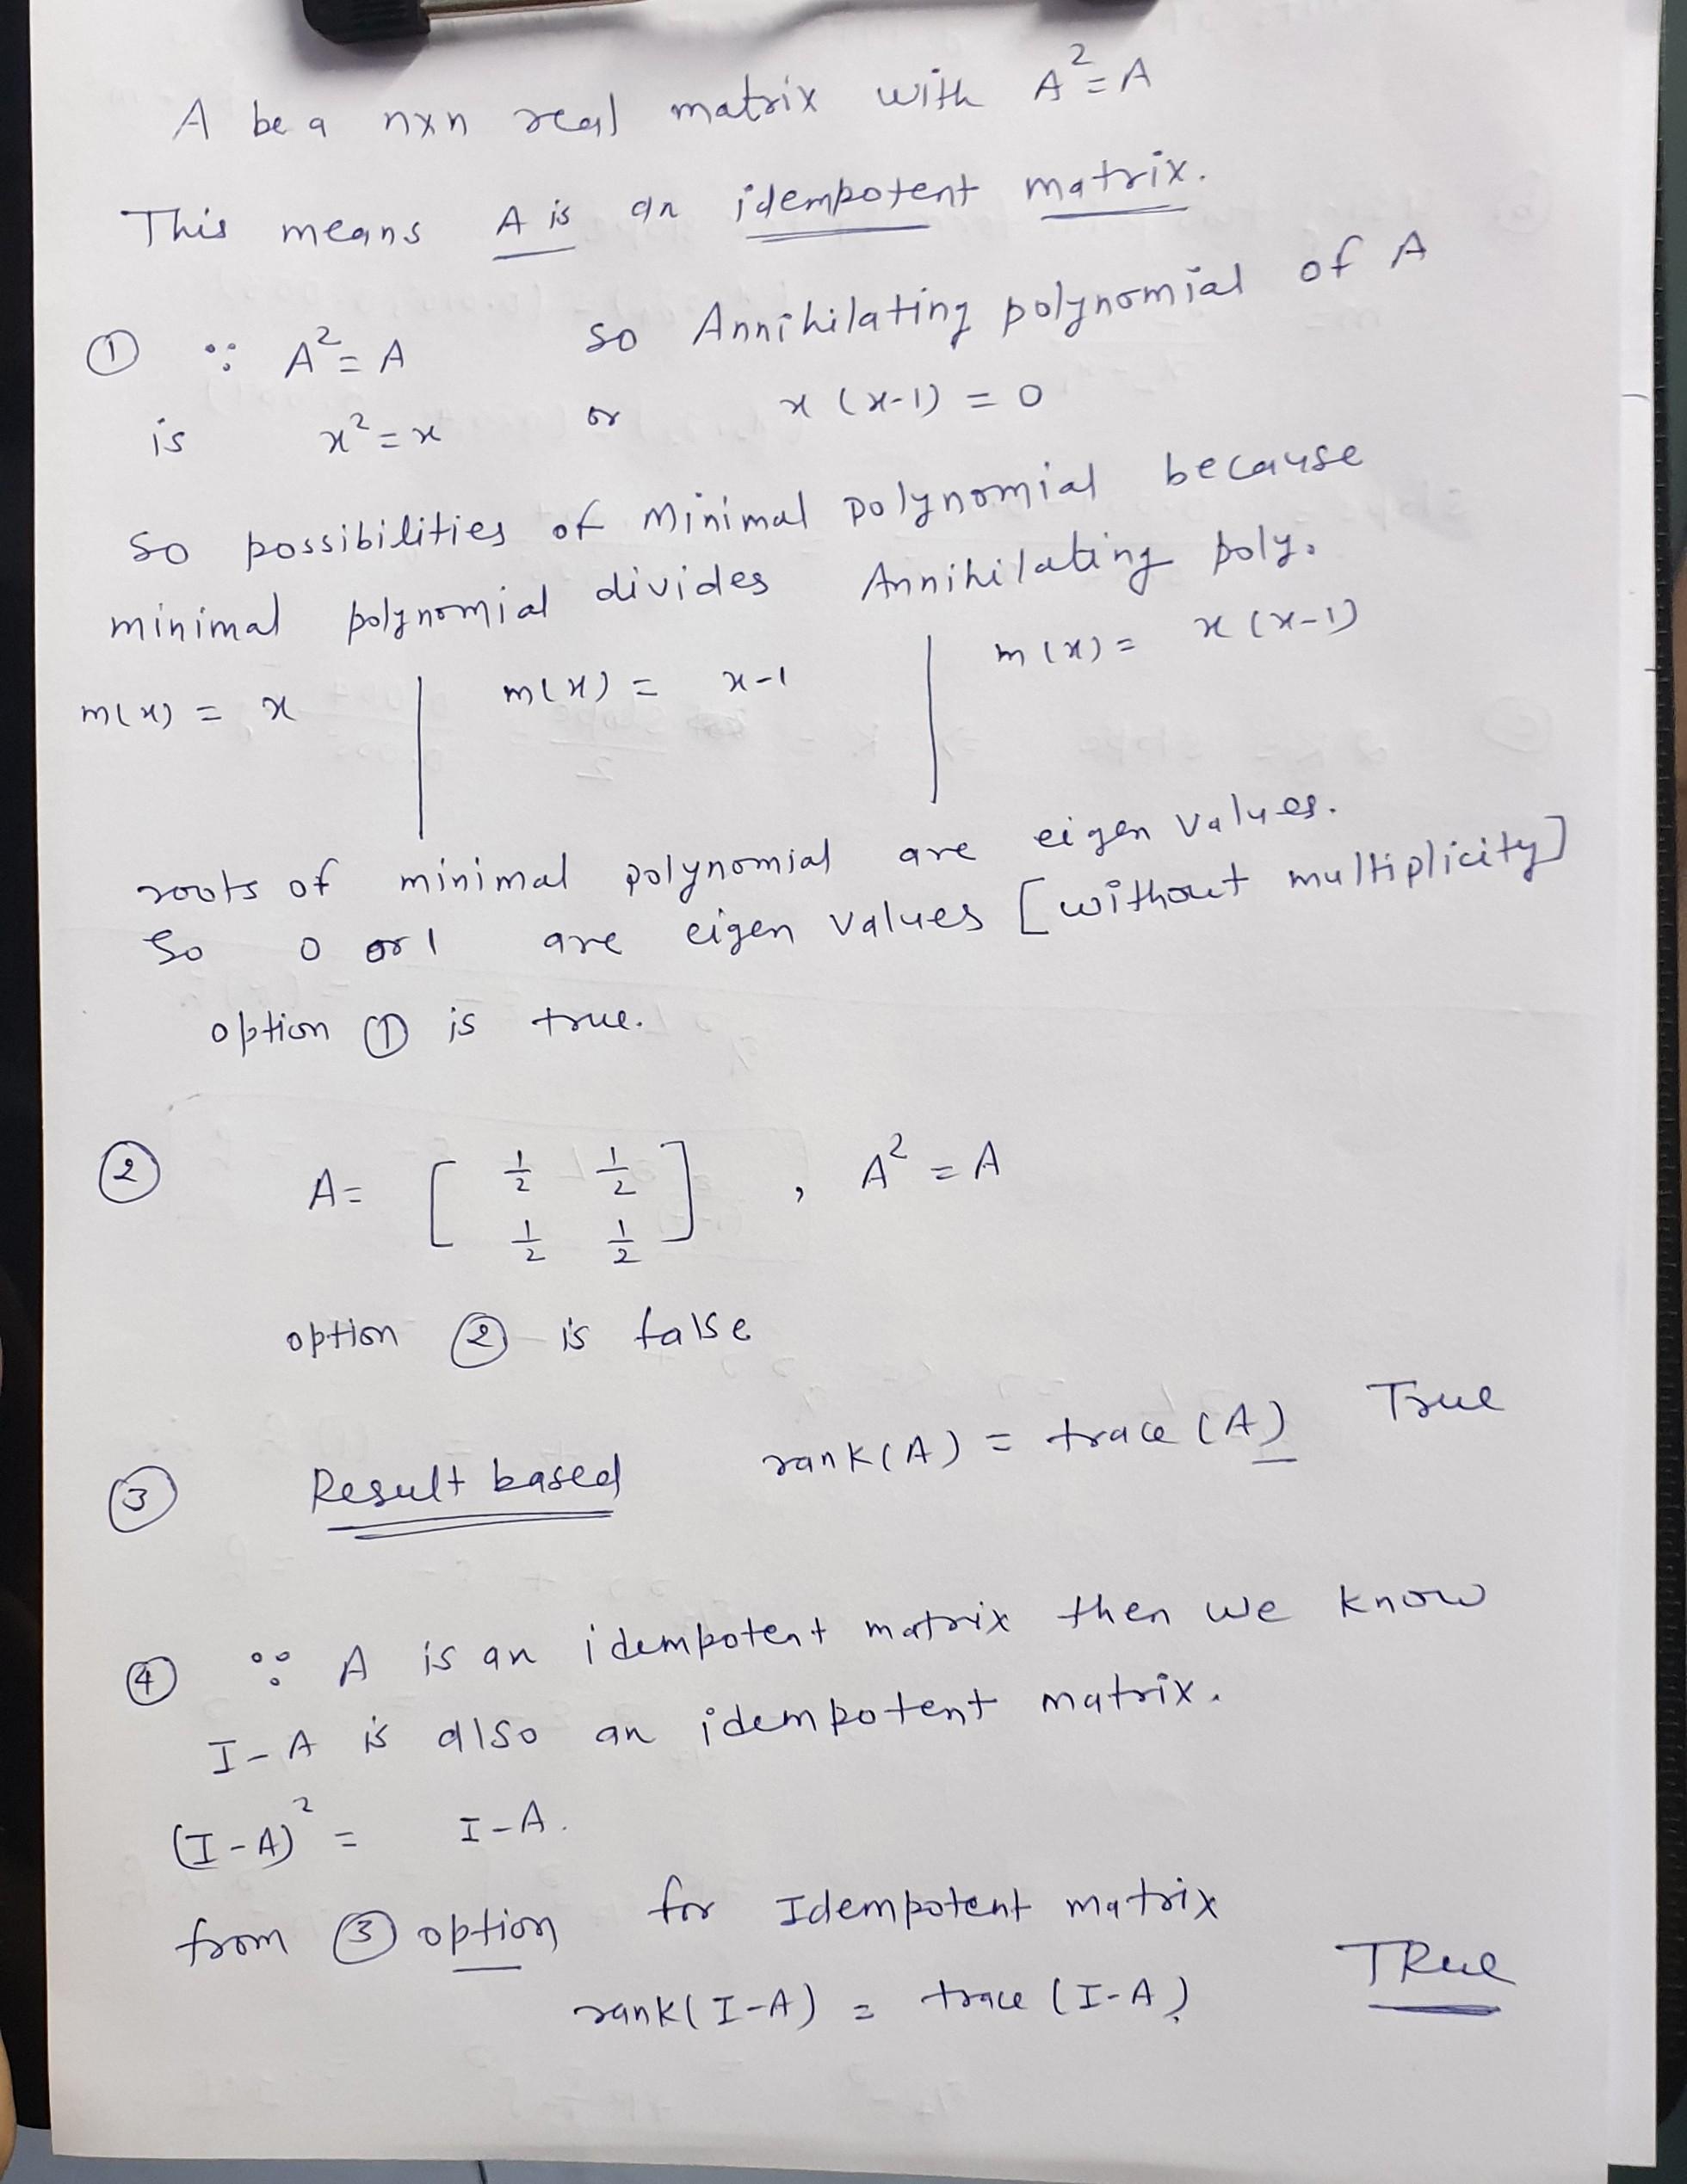 A be a nxn real matrix with A²=A
This means A is an idempotent matrix.
① ∵ A²=A so Annihilating polynomial of A
is x²=x or x(x-1)=0
so possibilities of minimal polynomial because
minimal polynomial divides Annihilating poly.
m(x) = x | m(x) = x-1 | m(x) = x(x-1)
roots of minimal polynomial are eigen values.
So 0 or 1 are eigen values [without multiplicity]
option ① is true.
② A= [ 1/2 1/2
1/2 1/2 ] , A² = A
option ② is false
③ Result based rank(A) = trace(A) True
④ ∵ A is an idempotent matrix then we know
I-A is also an idempotent matrix.
(I-A)² = I-A.
from ③ option for Idempotent matrix
rank(I-A) = trace(I-A). TRue